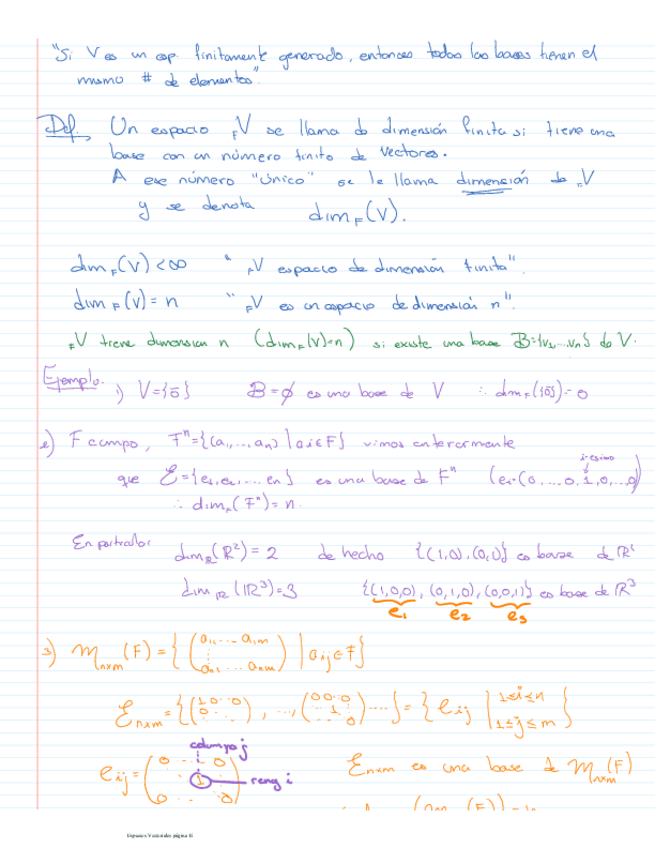 "Si V es un esp. finitamente generado, entonces todas las bases tienen el
mismo # de elementos".
Def. Un espacio FV se llama de dimensión finita si tiene una
base con un número finito de vectores.
A ese número "único" se le llama dimensión de FV
y se denota dim_F(V).
dim_F(V) < ∞ " FV espacio de dimensión finita".
dim_F(V) = n " FV es un espacio de dimensión n".
FV tiene dimension n (dim_F(V)=n) si existe una base B={v1,...,vn} de V.
Ejemplo. 1) V={0̄} B=∅ es una base de V ∴ dim_F({0̄})=0
2) F campo, F^n={(a1,...,an) | ai∈F} vimos anteriormente
i-esimo
que ℰ={e1,e2,...,en} es una base de F^n (ei=(0,...,0,1,0,...,0)
∴ dim_F(F^n)=n.
En particular dim_ℝ(ℝ²)=2 de hecho {(1,0),(0,1)} es base de ℝ²
dim_ℝ(ℝ³)=3 {(1,0,0), (0,1,0), (0,0,1)} es base de ℝ³
e1 e2 e3
3) M_nxm(F) = { (a11 ... a1m ⋮ an1 ... anm) | aij∈F}
ℰ_nxm = {(1 0 ... 0 0 ... 0), ..., (0 0 ... 0 1 0) ...} = { eij | 1≤i≤n 1≤j≤m }
columna j
eij = (0 ... 0 1 0 ... 0) reng i ℰ_nxm es una base de M_nxm(F)
Espacios Vectoriales página 11